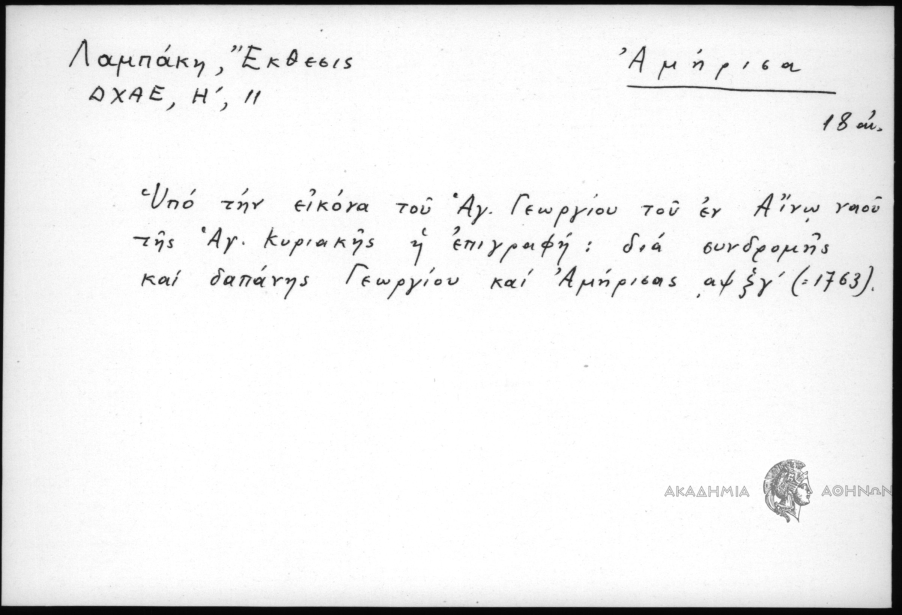 Λαμπάκη, Ἔκθεσις
ΔΧΑΕ, Η΄, 11
Ἀμήρισα
18 αἰ.
Ὑπό τήν εἰκόνα τοῦ Ἁγ. Γεωργίου τοῦ ἐν Αἴνῳ ναοῦ
τῆς Ἁγ. Κυριακῆς ἡ ἐπιγραφή : διά συνδρομῆς
καί δαπάνης Γεωργίου καί Ἀμήρισας ͵αψξγ΄ (=1763).
ΑΚΑΔΗΜΙΑ ΑΘΗΝΩΝ